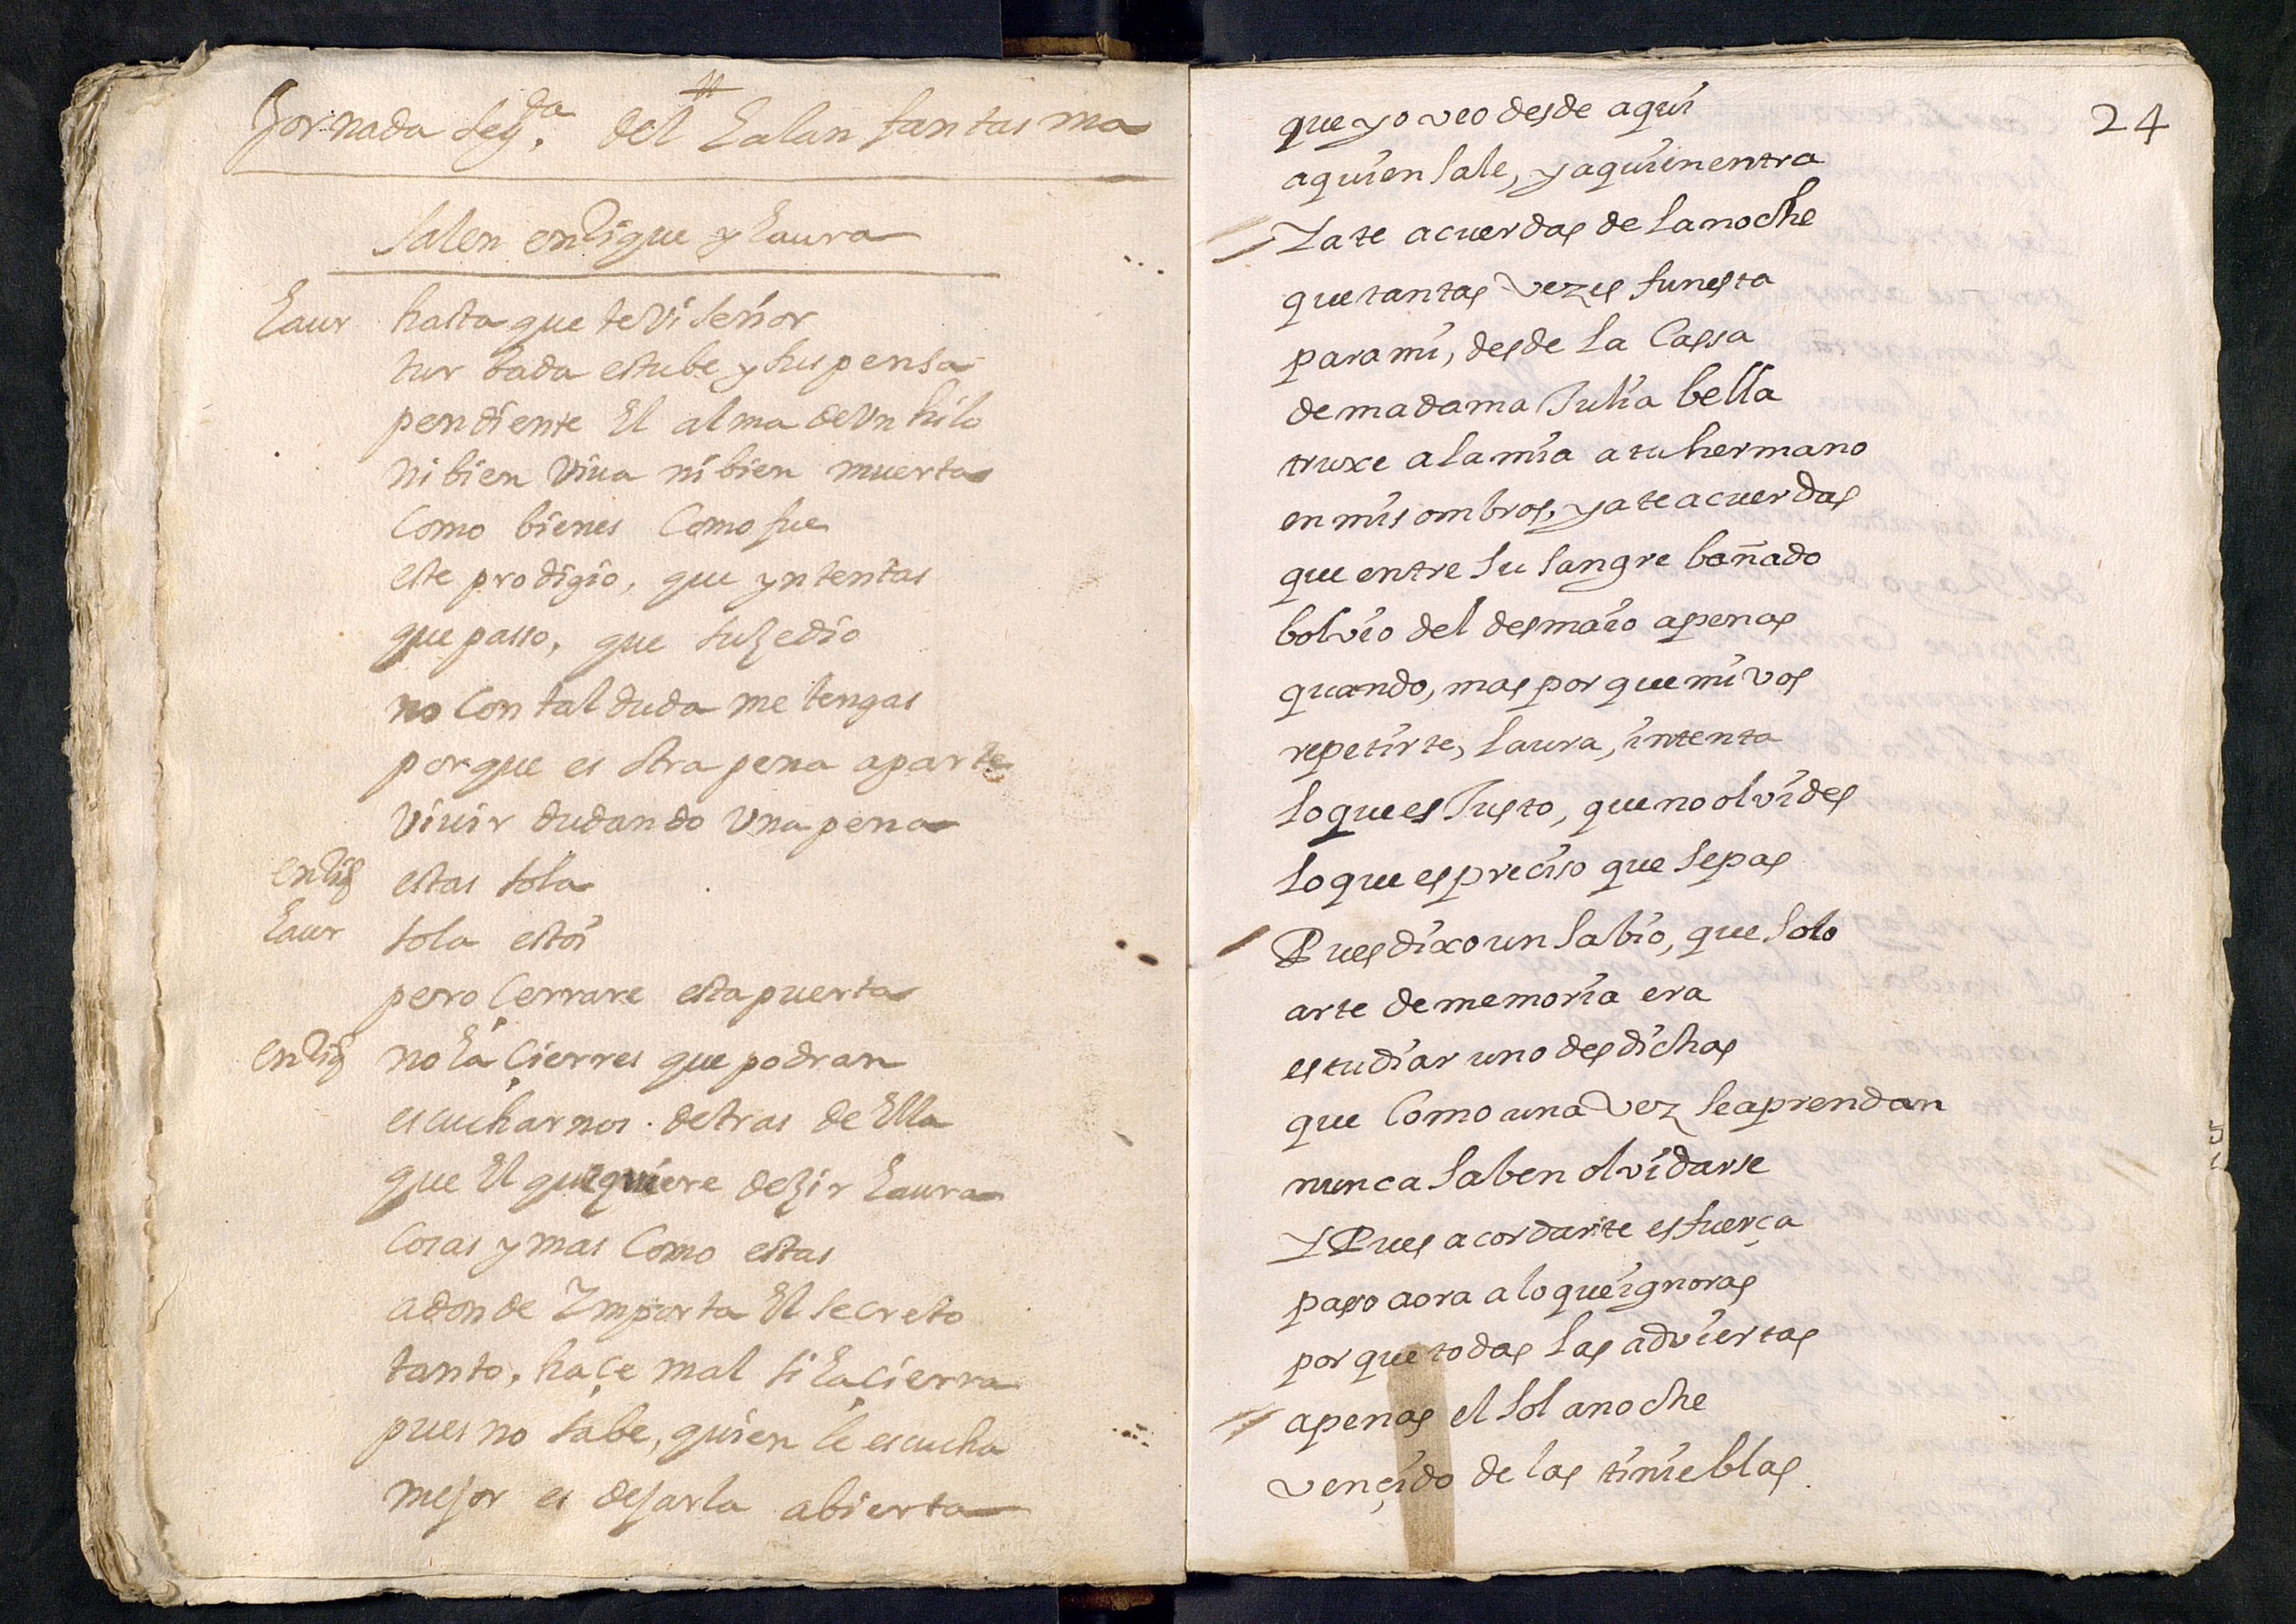 Jornada seg.da del Galan fantasma
Salen enRique y Laura
Laur hasta que te vi señor
turbada estube y suspensa
pendiente El alma de Vn hilo
ni bien viua ni bien muerta
Como bienes Como fue
este prodigio, que yntentas
que passo, que suzedio
no Con tal duda me tengas
porque es otra pena aparte
viuir dudando Vna pena
enRiq estas sola
Laur sola estoi
pero Çerrare esta puerta
enRiq no la Çierres que podran
escucharnos. detras de Ella
que El que quiere dezir Laura
Cosas y mas Como estas
adonde Importa El secreto
tanto, haçe mal si la çierra
pues no sabe, quien le escucha
mejor es dejarla abierta
24
que yo veo desde aqui
a quien sale, y a quien entra
Ya te acuerdas de la noche
que tantas vezes funesta
para mi, desde la Cassa
de madama Julia bella
truxe a la mia a tu hermano
en mis ombros, ya te acuerdas
que entre su sangre bañado
bolvio del desmaio apenas
quando, mas por que mi vos
repetirte, Laura, intenta
lo que es Justo, que no olvides
lo que es preciso que sepas
Pues dixo un sabio, que solo
arte de memoria era
estudiar uno desdichas
que Como una vez se aprendan
nunca saben olvidarse
Y Pues acordarte es fuerça
passo aora a lo que ignoras
por que todas las adviertas
apenas el sol anoche
vençido de las tinieblas.